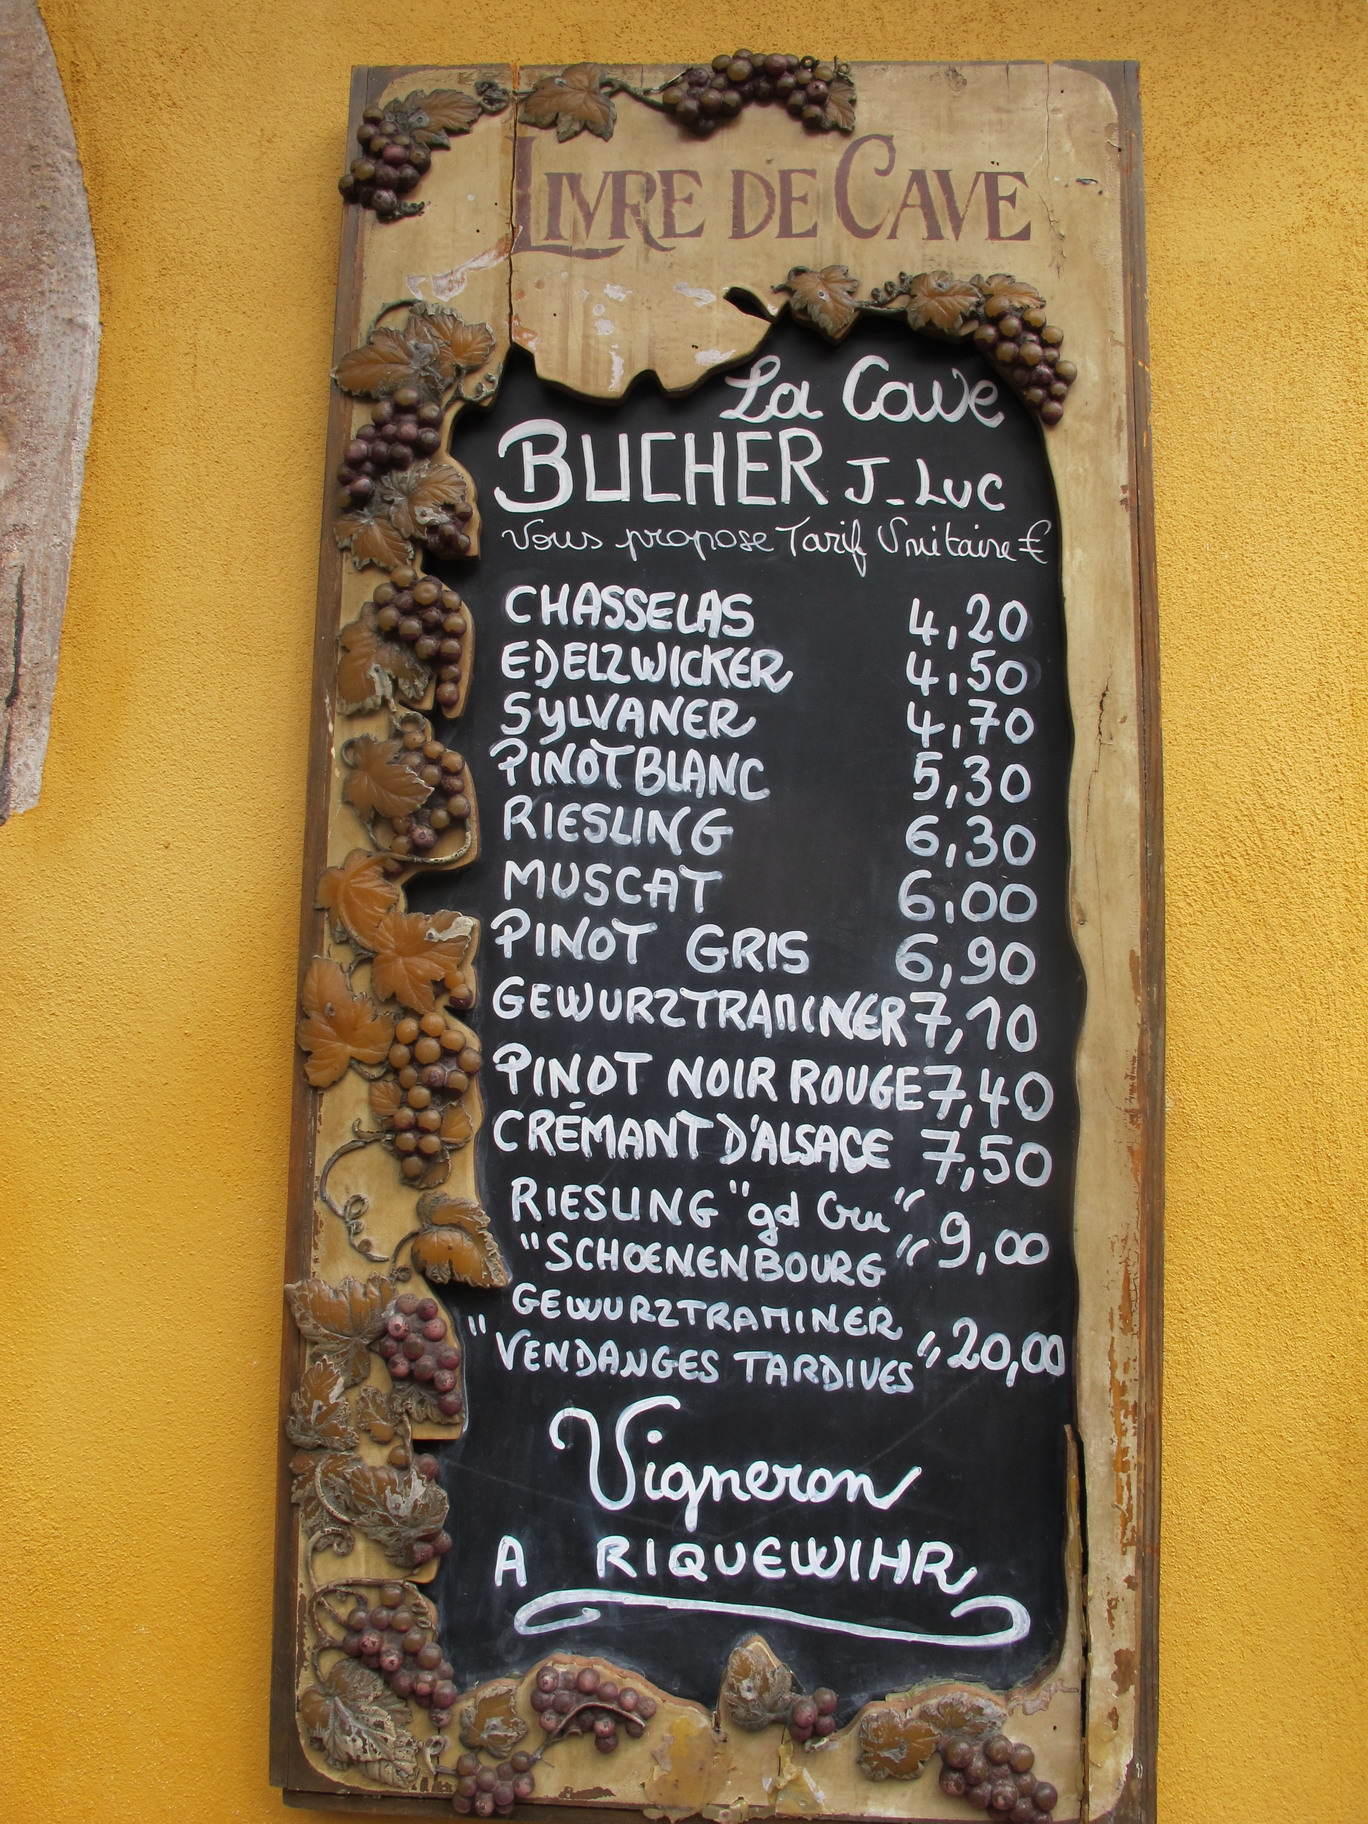 LIVRE DE CAVE
La Cave
BUCHER J-LUC
Vous propose Tarif Unitaire €
CHASSELAS 4,20
EDELZWICKER 4,50
SYLVANER 4,70
PINOT BLANC 5,30
RIESLING 6,30
MUSCAT 6,00
PINOT GRIS 6,90
GEWURZTRAMINER 7,10
PINOT NOIR ROUGE 7,40
CRÉMANT D'ALSACE 7,50
RIESLING "gd Cru"
"SCHOENENBOURG" 9,00
GEWURZTRAMINER
"VENDANGES TARDIVES" 20,00
Vigneron
A RIQUEWIHR